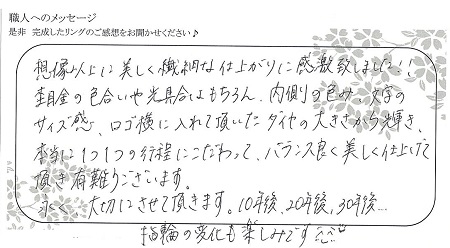 職人へのメッセージ
是非 完成したリングのご感想をお聞かせください♪
想像以上に美しく繊細な仕上がりに感激致しました!!
地金の色合いや光具合はもちろん、内側の色み、文字の
サイズ感、ロゴ横に入れて頂いたダイヤの大きさから輝き、
本当に1つ1つの行程にこだわって、バランス良く美しく仕上げて
頂き有難うございます。
永く、大切にさせて頂きます。10年後、20年後、30年後…
指輪の変化も楽しみです